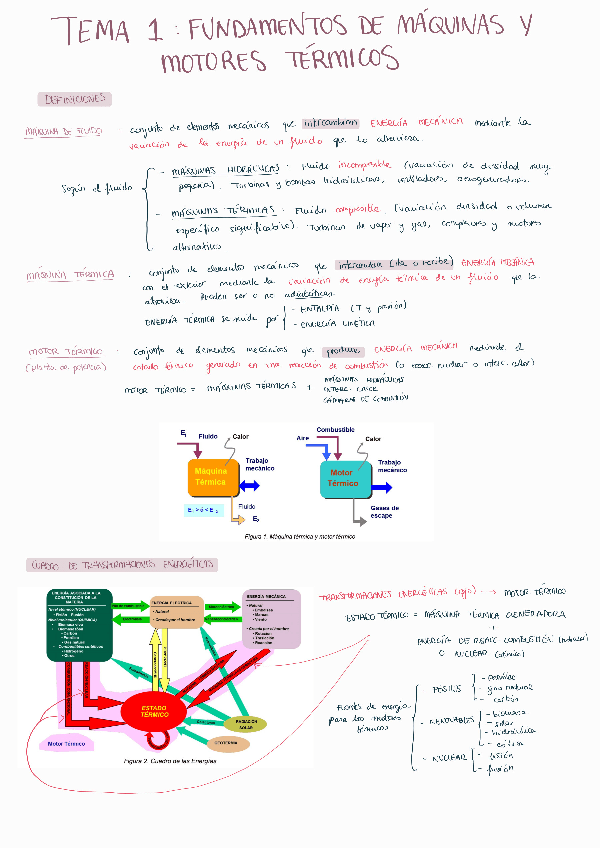 TEMA 1 : FUNDAMENTOS DE MÁQUINAS Y
MOTORES TÉRMICOS
DEFINICIONES
MÁQUINA DE FLUIDO · conjunto de elementos mecánicos que intercambian ENERGÍA MECÁNICA mediante la
variación de la energía de un fluido que lo atraviesa.
Según el fluido
- MÁQUINAS HIDRÁULICAS · Fluido incompresible (variación de densidad muy
pequeña). Turbinas y bombas hidráulicas, ventiladores, aerogeneradores.
- MÁQUINAS TÉRMICAS · Fluido compresible (variación densidad o volumen
específico significativo). Turbinas de vapor y gas, compresores y motores
alternativos
MÁQUINA TÉRMICA · conjunto de elementos mecánicos que intercambia (da o recibe) ENERGÍA MECÁNICA
con el exterior mediante la variación de energía térmica de un fluido que lo
atraviesa. Pueden ser o no adiabáticas.
ENERGÍA TÉRMICA se mide por
- ENTALPÍA (T y presión)
- ENERGÍA CINÉTICA
MOTOR TÉRMICO · conjunto de elementos mecánicos que produce ENERGÍA MECÁNICA mediante el
(planta de potencia) estado térmico generado en una reacción de combustión (o reac nuclear o interc. calor)
MOTOR TÉRMICO = MÁQUINAS TÉRMICAS +
MÁQUINAS HIDRÁULICAS
INTERC. CALOR
CÁMARAS DE COMBUSTIÓN
E1 Fluido Calor
Máquina
Térmica
Trabajo
mecánico
E1 > ó < E2
Fluido
E2
Combustible
Aire
Calor
Motor
Térmico
Trabajo
mecánico
Gases de
escape
Figura 1. Máquina térmica y motor térmico
CUADRO DE TRANSFORMACIONES ENERGÉTICAS
ENERGÍA ASOCIADA A LA
CONSTITUCIÓN DE LA
MATERIA
Nivel atómico (NUCLEAR)
• Fisión - Fusión
Nivel molecular (QUÍMICA)
• Biomasa viva
• Combustibles
• Carbón
• Petróleo
• Gas natural
• Combustibles sintéticos
• Hidrógeno
• Otros
ENERGÍA ELÉCTRICA
• Natural
• Creada por el hombre
ENERGÍA MECÁNICA
• Natural
• Embalses
• Mareas
• Viento
• Creada por el hombre
• Rotación
• Traslación
• Reacción
ESTADO
TÉRMICO
RADIACIÓN
SOLAR
GEOTERMIA
Motor Térmico
Figura 2. Cuadro de las Energías
TRANSFORMACIONES ENERGÉTICAS (rojo) → MOTOR TÉRMICO
ESTADO TÉRMICO = MÁQUINA TÉRMICA GENERADORA
+
ENERGÍA DE REACC COMBUSTIÓN (materia)
O NUCLEAR (átomo)
Fuentes de energía
para los motores
térmicos
- FÓSILES
- petróleo
- gas natural
- carbón
- RENOVABLES
- biomasa
- solar
- hidráulica
- eólica
- NUCLEAR
- fisión
- fusión